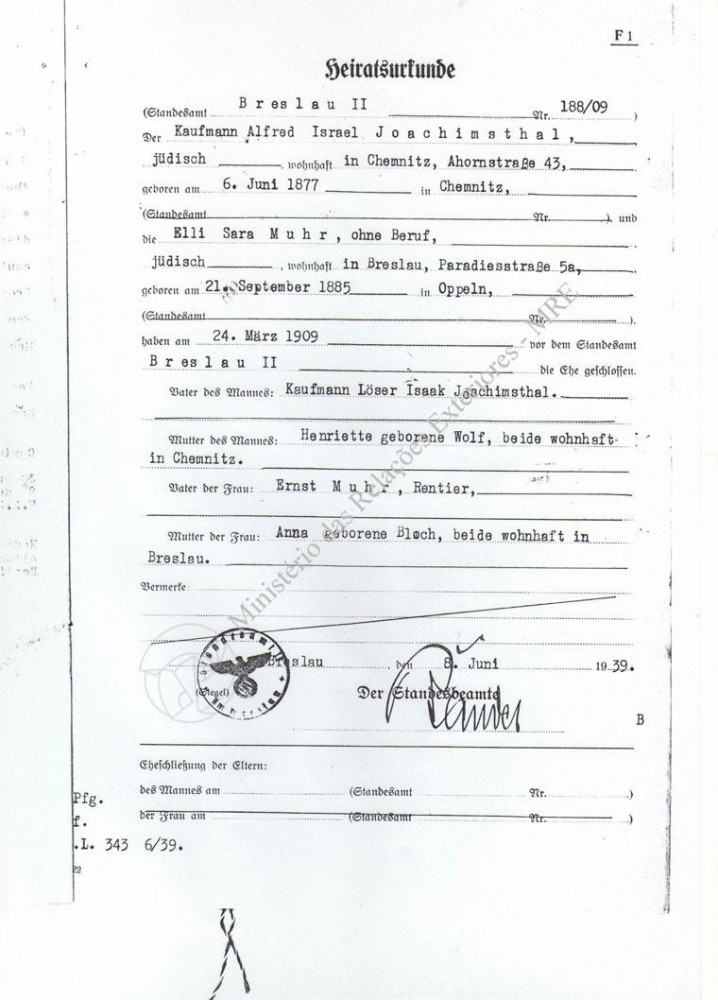 F 1
Heiratsurkunde
(Standesamt Breslau II Nr. 188/09 )
Der Kaufmann Alfred Israel Joachimsthal,
jüdisch , wohnhaft in Chemnitz, Ahornstraße 43,
geboren am 6. Juni 1877 in Chemnitz,
(Standesamt Nr. ), und
die Elli Sara Muhr, ohne Beruf,
jüdisch , wohnhaft in Breslau, Paradiesstraße 5a,
geboren am 21. September 1885 in Oppeln,
(Standesamt Nr. ),
haben am 24. März 1909 vor dem Standesamt
Breslau II die Ehe geschlossen.
Vater des Mannes: Kaufmann Löser Isaak Joachimsthal.
Mutter des Mannes: Henriette geborene Wolf, beide wohnhaft
in Chemnitz.
Vater der Frau: Ernst Muhr, Rentier,
Mutter der Frau: Anna geborene Bloch, beide wohnhaft in
Breslau.
Vermerke:
Breslau , den 8. Juni 1939.
(Siegel) Der Standesbeamte
B
Eheschließung der Eltern:
des Mannes am (Standesamt Nr. )
der Frau am (Standesamt Nr. )
Pfg.
f.
.L. 343 6/39.
22
Ministério das Relações Exteriores - MRE